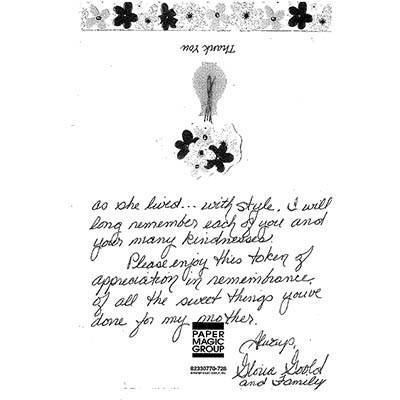 Thank You
as she lived... with style. I will
long remember each of you and
your many kindnesses.
Please enjoy this token of
appreciation in remembrance
of all the sweet things you've
done for my mother.
PAPER
MAGIC
GROUP
Always,
Gloria Goold
and Family
62330770-728